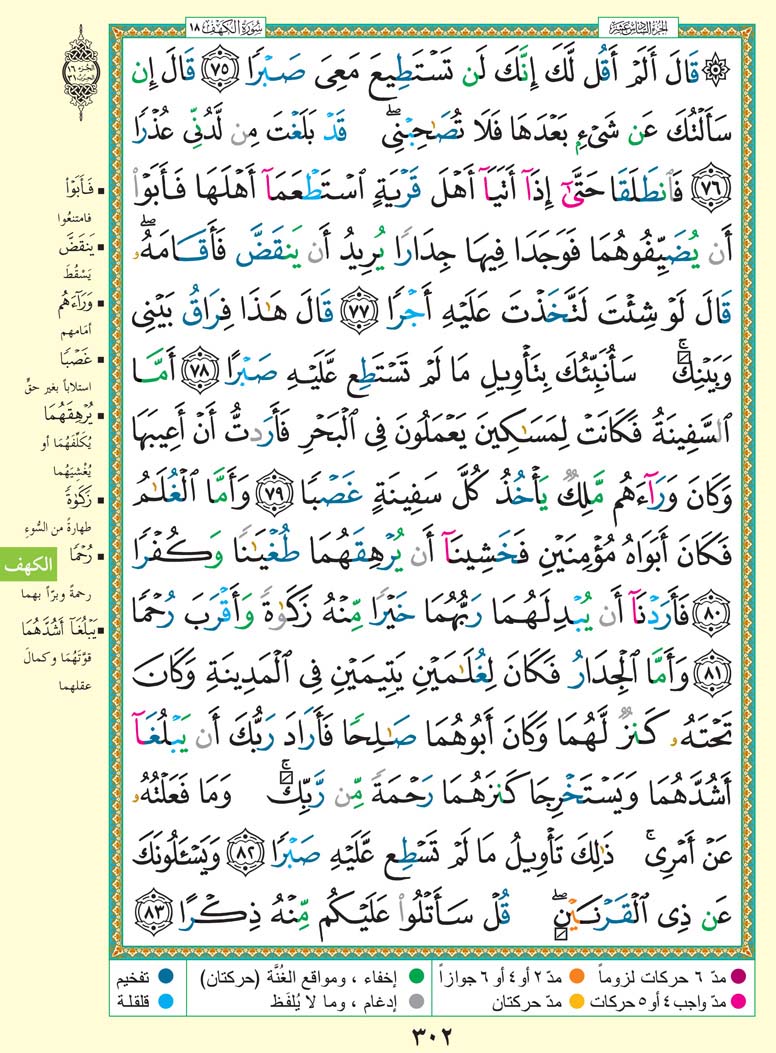 الجزء السادس عشر
سورة الكهف ١٨
۞ قَالَ أَلَمْ أَقُل لَّكَ إِنَّكَ لَن تَسْتَطِيعَ مَعِىَ صَبْرًا ﴿٧٥﴾ قَالَ إِن
سَأَلْتُكَ عَن شَىْءٍۭ بَعْدَهَا فَلَا تُصَـٰحِبْنِى ۖ قَدْ بَلَغْتَ مِن لَّدُنِّى عُذْرًا
﴿٧٦﴾ فَٱنطَلَقَا حَتَّىٰٓ إِذَآ أَتَيَآ أَهْلَ قَرْيَةٍ ٱسْتَطْعَمَآ أَهْلَهَا فَأَبَوْا۟
أَن يُضَيِّفُوهُمَا فَوَجَدَا فِيهَا جِدَارًا يُرِيدُ أَن يَنقَضَّ فَأَقَامَهُۥ ۖ
قَالَ لَوْ شِئْتَ لَتَّخَذْتَ عَلَيْهِ أَجْرًا ﴿٧٧﴾ قَالَ هَـٰذَا فِرَاقُ بَيْنِى
وَبَيْنِكَ ۚ سَأُنَبِّئُكَ بِتَأْوِيلِ مَا لَمْ تَسْتَطِع عَّلَيْهِ صَبْرًا ﴿٧٨﴾ أَمَّا
ٱلسَّفِينَةُ فَكَانَتْ لِمَسَـٰكِينَ يَعْمَلُونَ فِى ٱلْبَحْرِ فَأَرَدتُّ أَنْ أَعِيبَهَا
وَكَانَ وَرَآءَهُم مَّلِكٌ يَأْخُذُ كُلَّ سَفِينَةٍ غَصْبًا ﴿٧٩﴾ وَأَمَّا ٱلْغُلَـٰمُ
فَكَانَ أَبَوَاهُ مُؤْمِنَيْنِ فَخَشِينَآ أَن يُرْهِقَهُمَا طُغْيَـٰنًا وَكُفْرًا
﴿٨٠﴾ فَأَرَدْنَآ أَن يُبْدِلَهُمَا رَبُّهُمَا خَيْرًا مِّنْهُ زَكَوٰةً وَأَقْرَبَ رُحْمًا
﴿٨١﴾ وَأَمَّا ٱلْجِدَارُ فَكَانَ لِغُلَـٰمَيْنِ يَتِيمَيْنِ فِى ٱلْمَدِينَةِ وَكَانَ
تَحْتَهُۥ كَنزٌ لَّهُمَا وَكَانَ أَبُوهُمَا صَـٰلِحًا فَأَرَادَ رَبُّكَ أَن يَبْلُغَآ
أَشُدَّهُمَا وَيَسْتَخْرِجَا كَنزَهُمَا رَحْمَةً مِّن رَّبِّكَ ۚ وَمَا فَعَلْتُهُۥ
عَنْ أَمْرِى ۚ ذَٰلِكَ تَأْوِيلُ مَا لَمْ تَسْطِع عَّلَيْهِ صَبْرًا ﴿٨٢﴾ وَيَسْـَٔلُونَكَ
عَن ذِى ٱلْقَرْنَيْنِ ۖ قُلْ سَأَتْلُوا۟ عَلَيْكُم مِّنْهُ ذِكْرًا ﴿٨٣﴾
الجزء ١٦
الحزب ٣١
فَأَبَوْا۟
فامتنعوا
يَنقَضَّ
يَسْقُطَ
وَرَآءَهُم
أمَامهم
غَصْبًا
استلاباً بغير حقٍّ
يُرْهِقَهُمَا
يُكَلِّفَهُمَا أو
يُغْشِيَهُما
زَكَوٰةً
طهارةً من السُّوءِ
رُحْمًا
الكهف
رحمةً وبرّاً بهما
يَبْلُغَآ أَشُدَّهُمَا
قوَّتَهُمَا وكمالَ
عقلهما
مدّ ٦ حركات لزوماً
مدّ ٢ أو ٤ أو ٦ جوازاً
إخفاء ، ومواقع الغُنَّة (حركتان)
تفخيم
مدّ واجب ٤ أو ٥ حركات
مدّ حركتان
إدغام ، وما لا يُلفَظ
قلقلة
٣٠٢